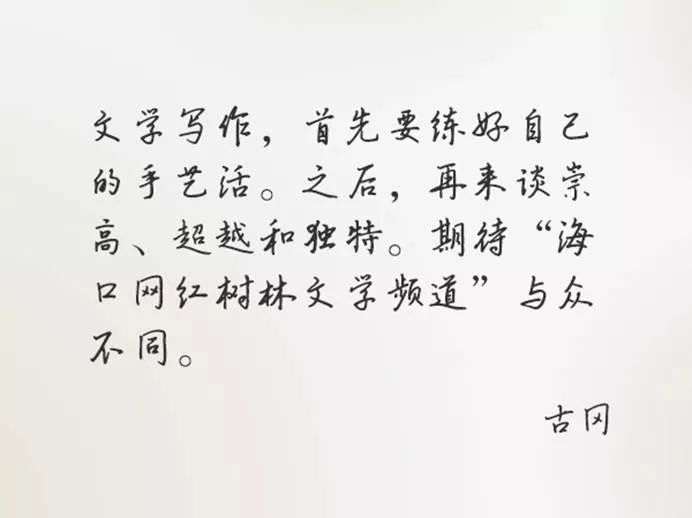 文学写作，首先要练好自己
的手艺活。之后，再来谈崇
高、超越和独特。期待“海
口网红树林文学频道”与众
不同。
古冈